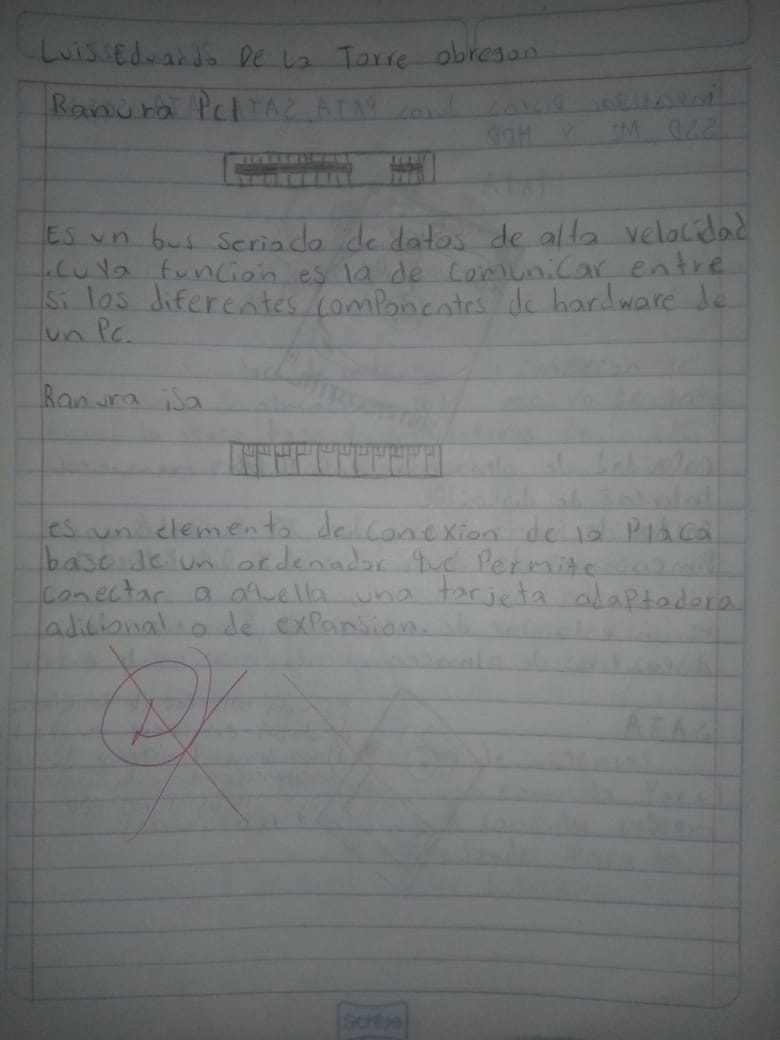 Luis Eduardo De La Torre obregon
Ranura PcI
Es un bus seriado de datos de alta velocidad
.cuya función es la de comunicar entre
si los diferentes componentes de hardware de
un Pc.
Ranura isa
es un elemento de conexion de la Placa
base de un ordenador que Permite
conectar a aquella una tarjeta adaptadora
adicional o de expansión.
Scribe